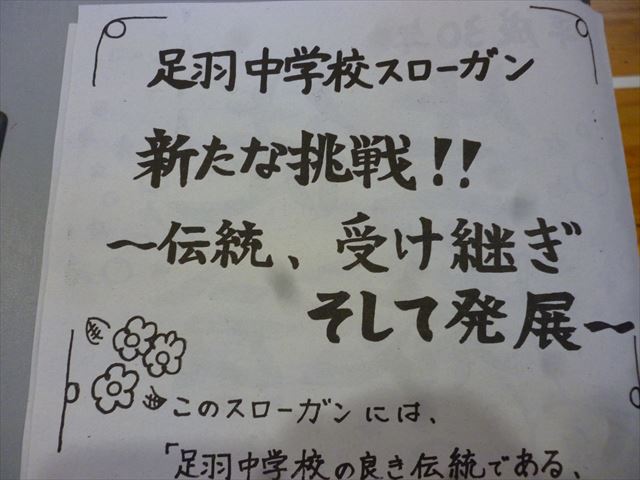 足羽中学校スローガン
新たな挑戦!!
～伝統、受け継ぎ
そして発展～
このスローガンには、
「足羽中学校の良き伝統である、